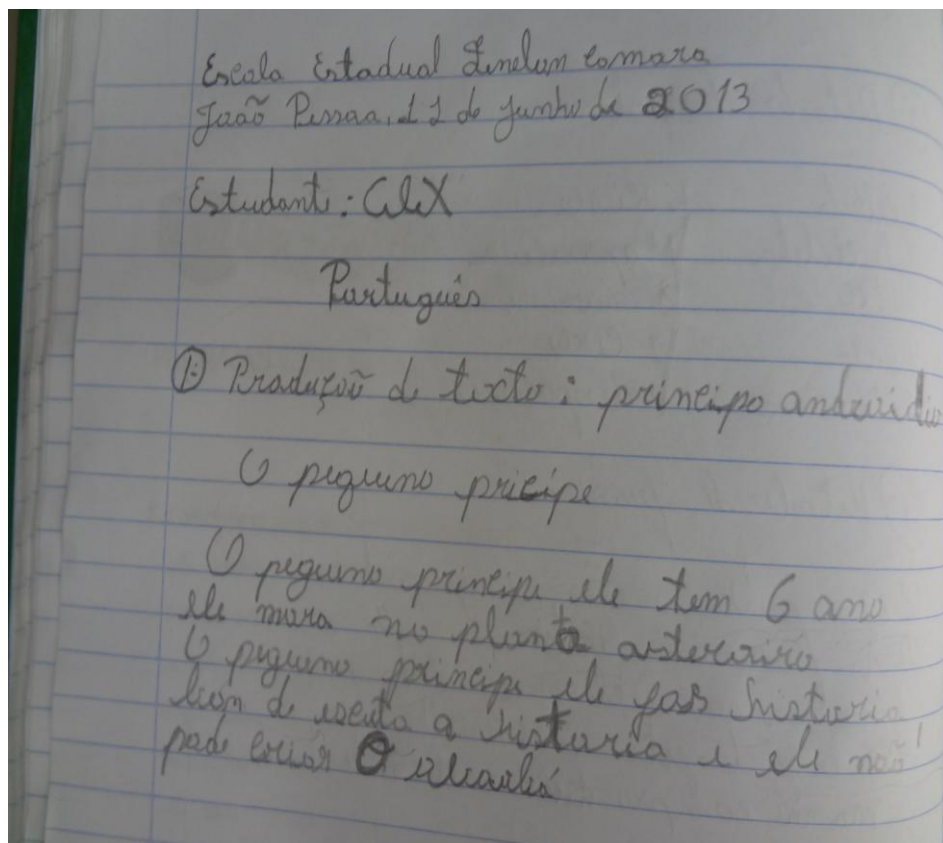 Escola Estadual camara
João Pessoa, 11 de junho de 2013
Estudante: Alex
Português
1 Produção de texto: principo
O pequeno pricipe
O pequeno principe ele tem 6 ano
ele mora no planta
O pequeno principe ele fas historia
de a historia e ele não
pode O